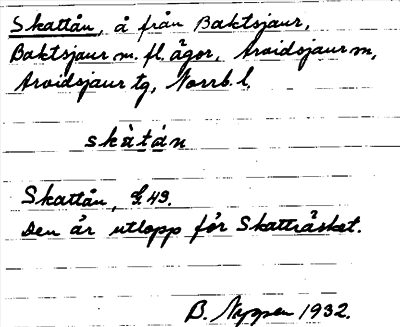 Skattån, å från Baktsjaur,
Baktsjaur m. fl. ägor, Arvidsjaur sn,
Arvidsjaur tg, Norrb. l.
skàtán
Skattån, G. 49.
Den är utlopp för Skatträsket.
B. 1932.